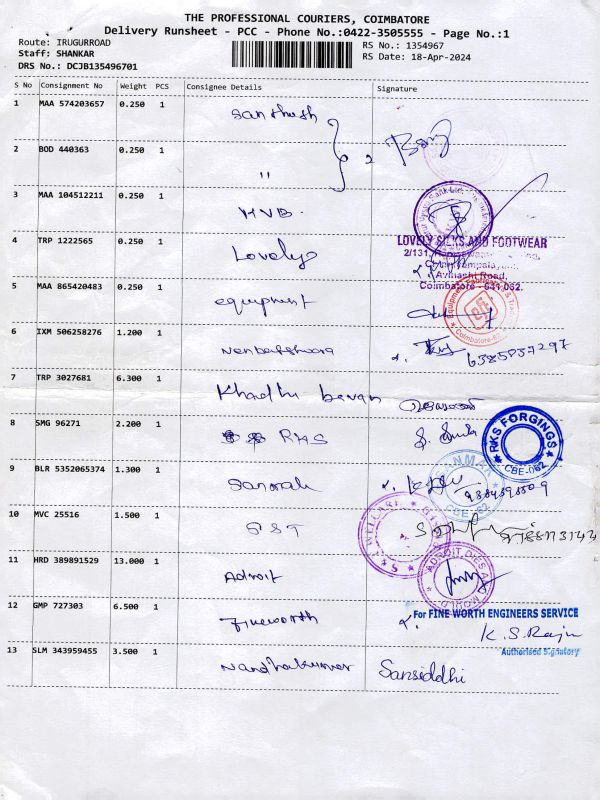 THE PROFESSIONAL COURIERS, COIMBATORE
Delivery Runsheet - PCC - Phone No.:0422-3505555 - Page No.:1
Route: IRUGURROAD
RS No.: 1354967
Staff: SHANKAR
RS Date: 18-Apr-2024
DRS No.: DCJB135496701
S No Consignment No Weight PCS Consignee Details Signature
1 MAA 574203657 0.250 1 Santhosh
2 BOD 440363 0.250 1 "
3 MAA 104512211 0.250 1 KVB.
4 TRP 1222565 0.250 1 Lovely
LOVELY SILKS AND FOOTWEAR
2/131,
Avinashi Road,
Coimbatore - 641 062.
5 MAA 865420483 0.250 1 equipment
6 IXM 506258276 1.200 1
7 TRP 3027681 6.300 1 Khadhi bavan
8 SMG 96271 2.200 1 RKS
RKS FORGINGS
CBE-062
9 BLR 5352065374 1.300 1
CBE-062
10 MVC 25516 1.500 1
11 HRD 389891529 13.000 1 Adroit
12 GMP 727303 6.500 1 Fineworth
For FINE WORTH ENGINEERS SERVICE
K.S.Raju
Authorised Signatory
13 SLM 343959455 3.500 1 Nandhakumar Sansiddhi